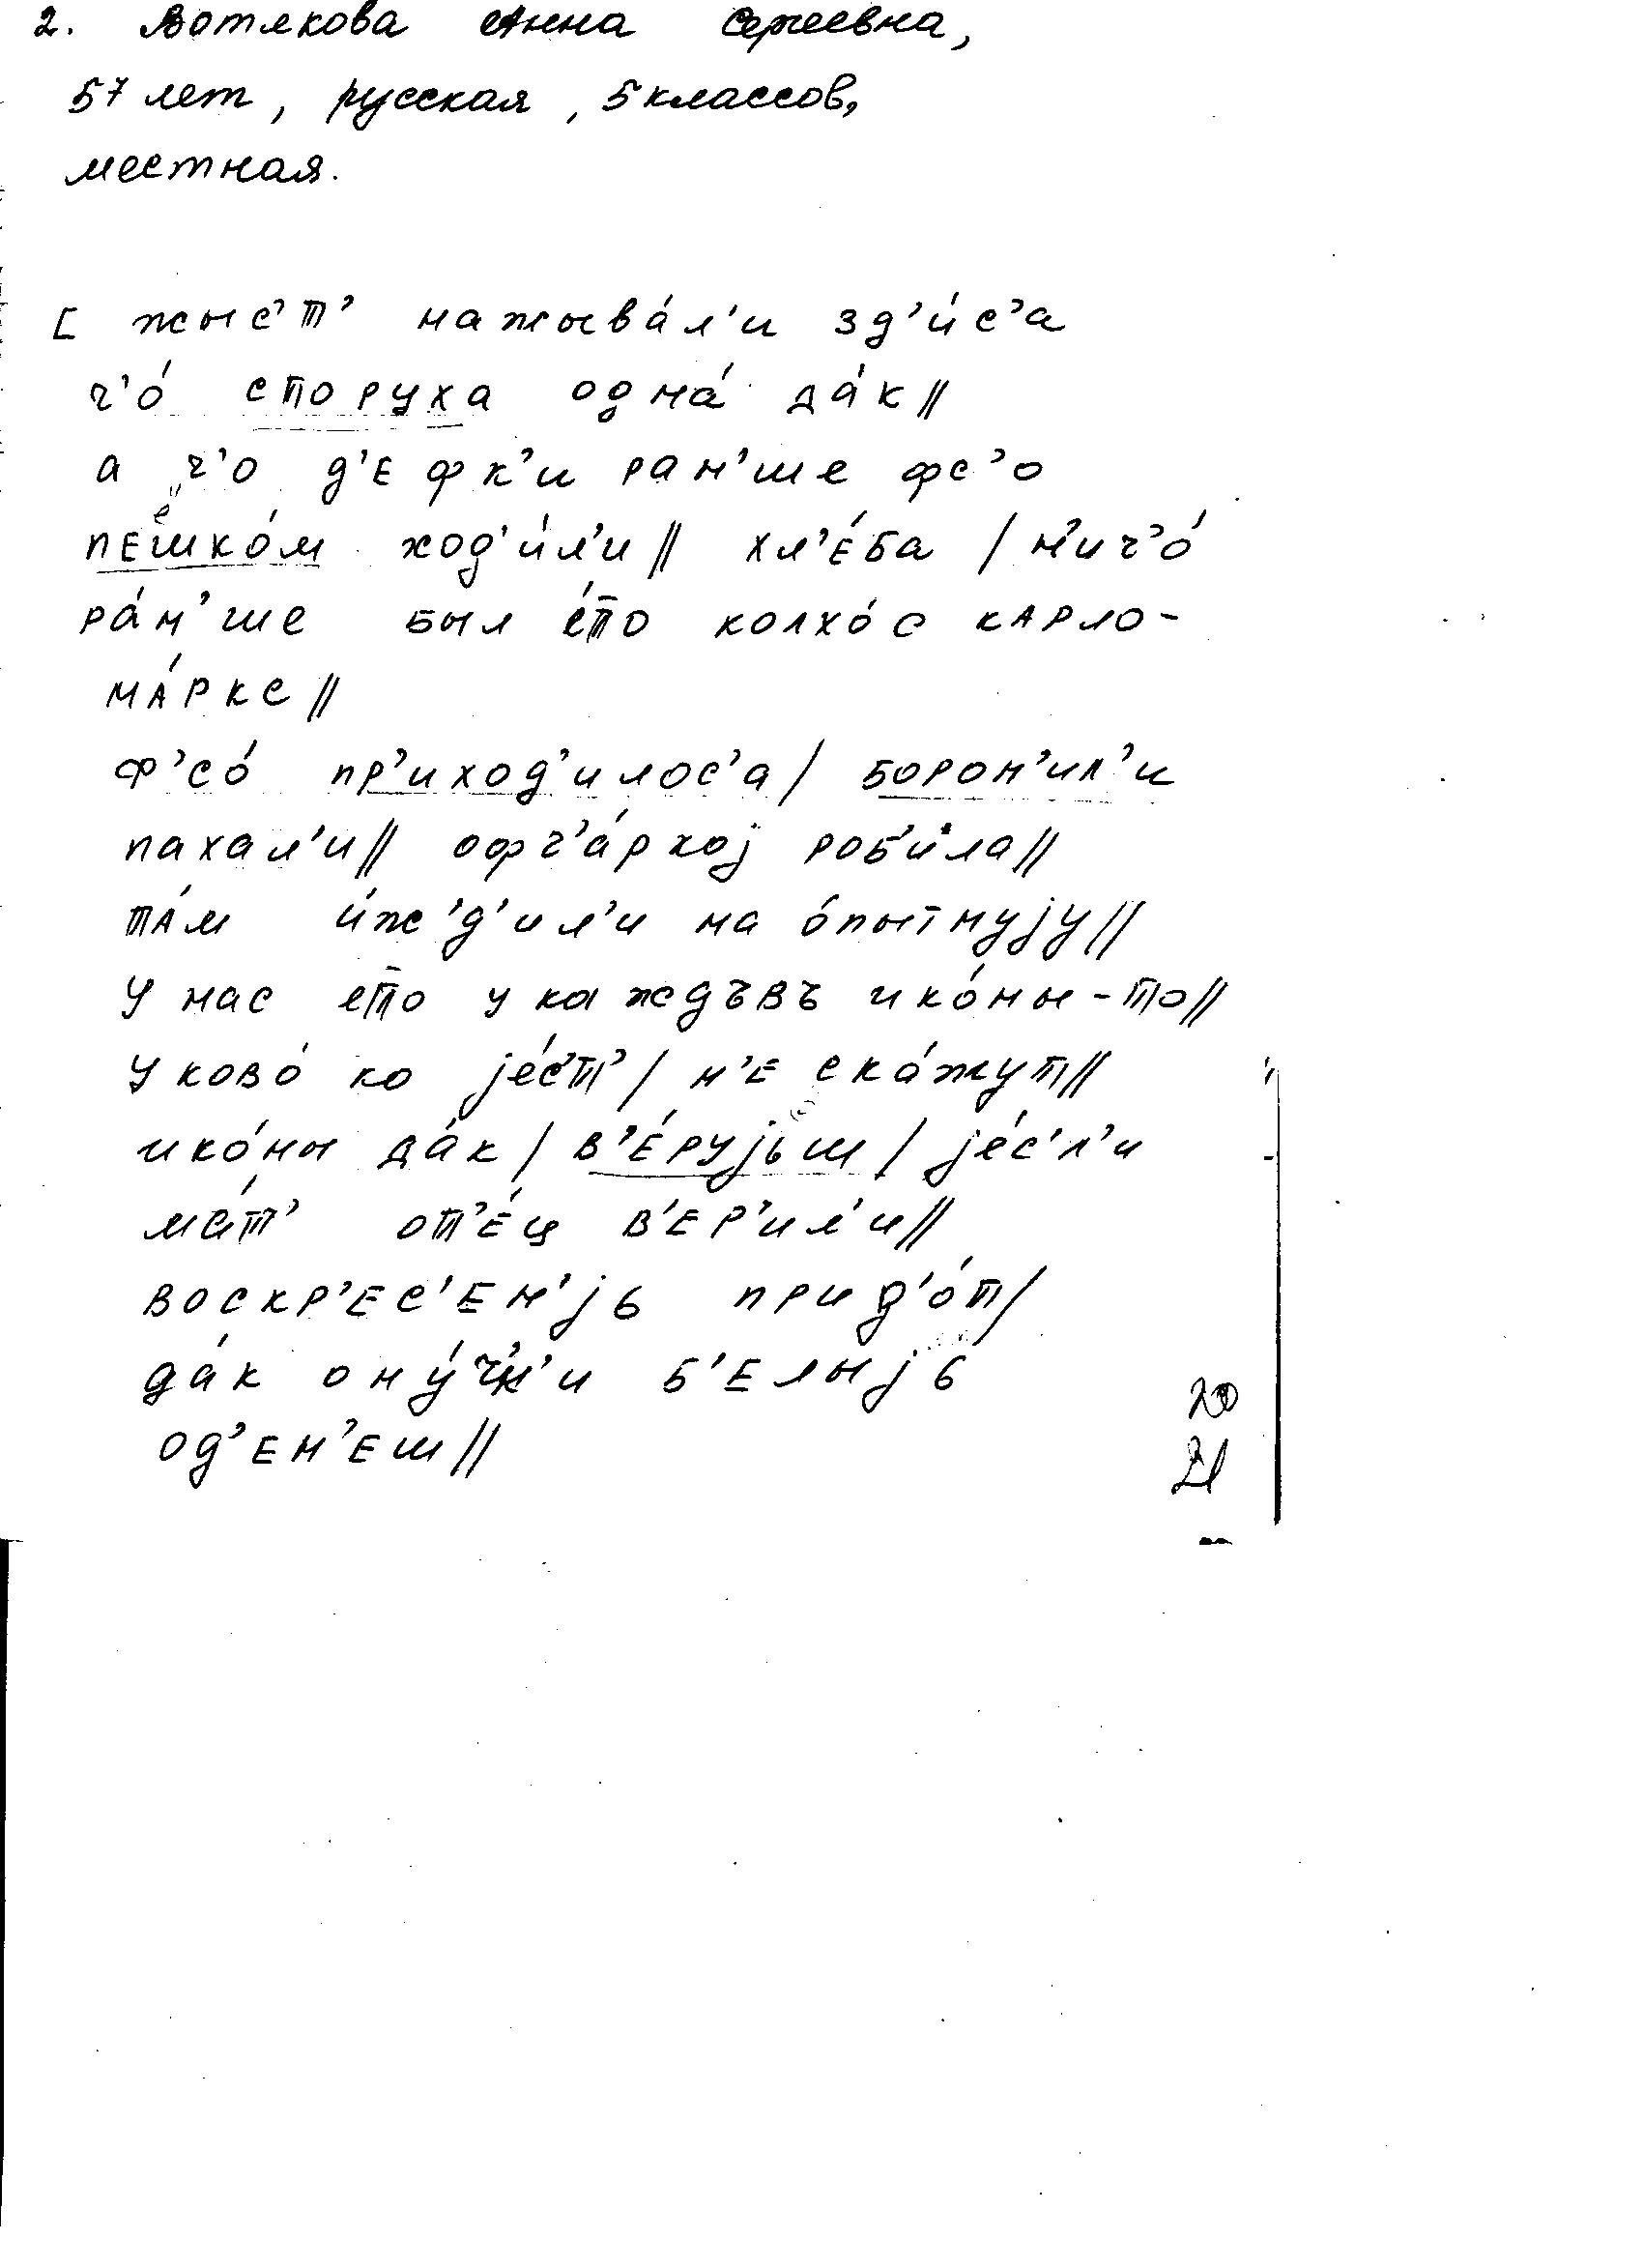 2. Вотякова Анна Сергеевна,
57 лет, русская, 5 классов,
местная.
[ жыс'т' нажывáл'и зд'и́с'а
ч'о́ споруха одна́ да́к//
а ч'о д'ефк'и ран'ше фс'о
пешко́м ход'и́л'и// хл'е́ба / н'ич'о́
ра́н'ше был е́то колхо́с карло-
ма́ркс//
ф'со́ пр'иход'илос'а/ борон'ил'и
пахал'и// офч'а́ркој роб'и́ла//
та́м и́ж'д'ил'и на о́пытнују//
у нас ето у каждъвъ ико́ны-то//
у ково́ ко је́с'т'/ н'е ска́жут//
ико́ны да́к/ в'е́рујьш/ је́с'л'и
ма́т' от'е́ц в'ер'ил'и//
воскр'ес'ен'јь прид'о́т/
да́к ону́ч'к'и б'елыјь
од'ен'еш//
20
21